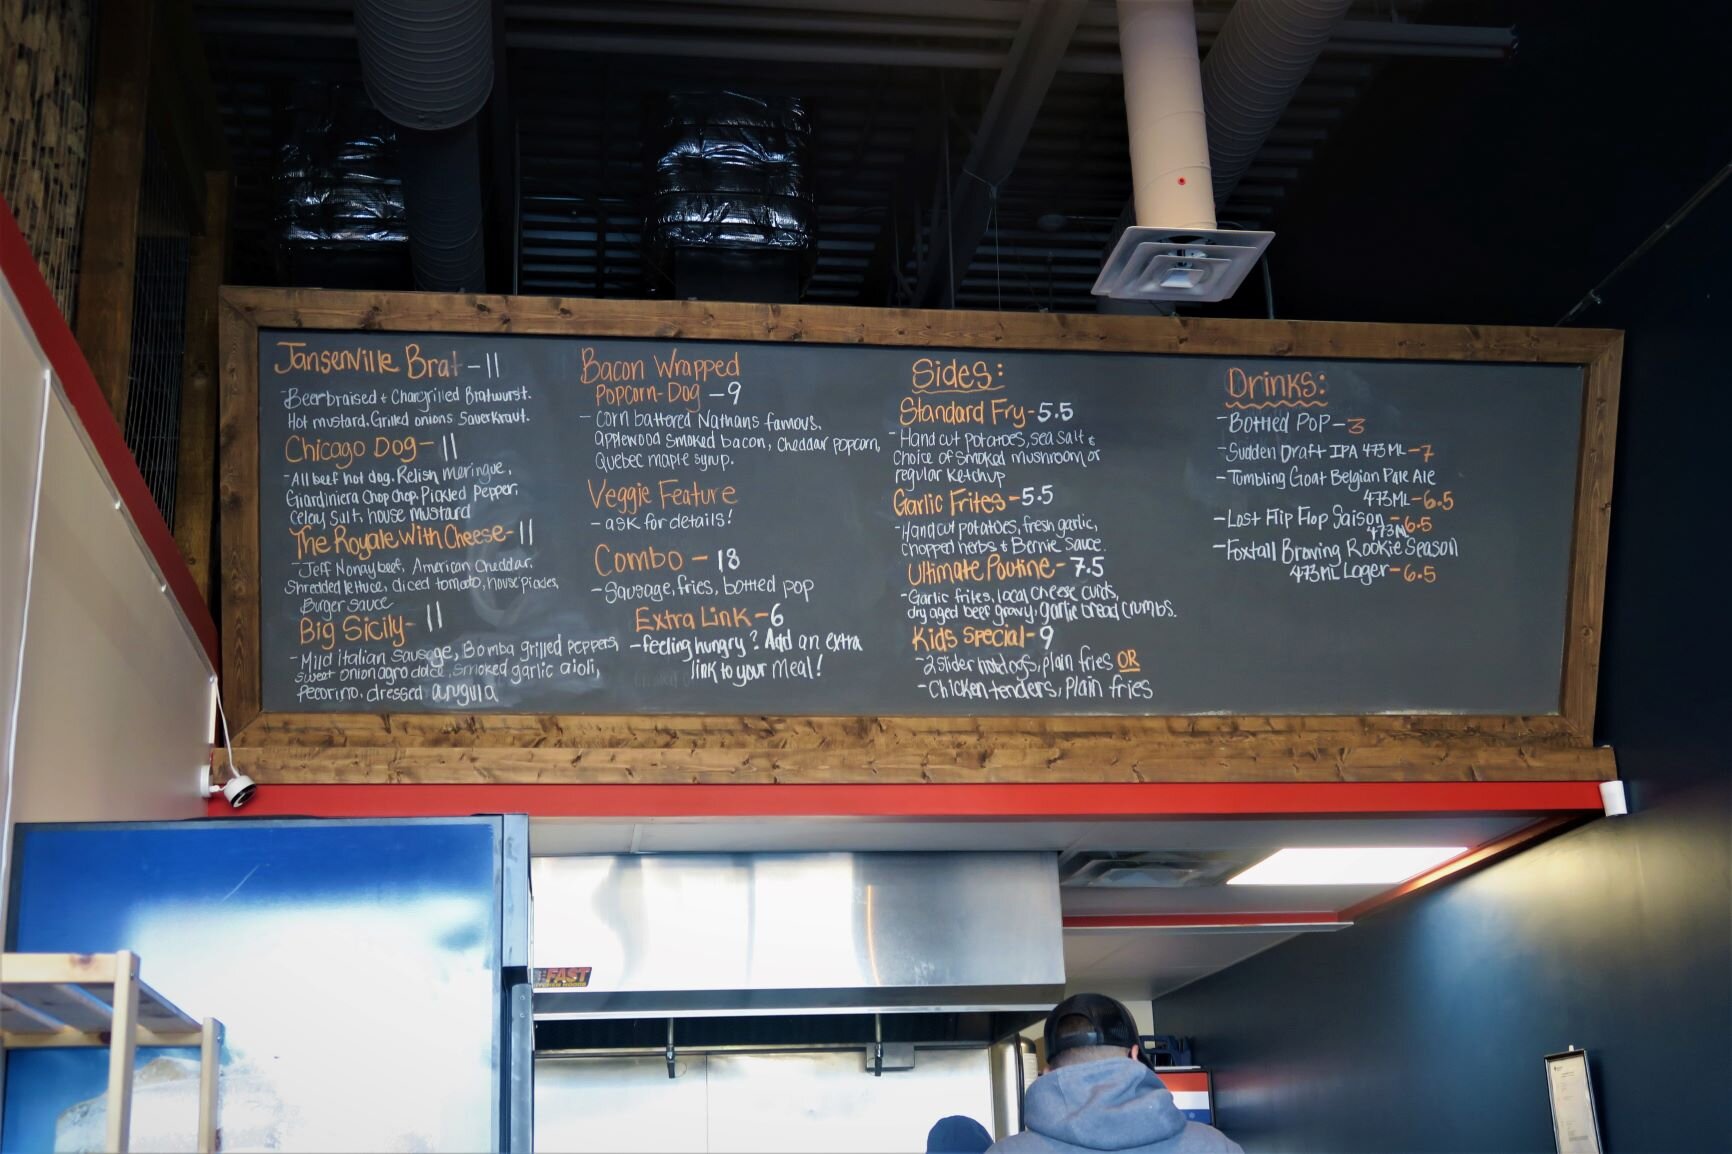 Jansenville Brat - 11
- Beerbraised + Chargrilled Bratwurst.
Hot mustard, Grilled onions Sauerkraut.
Chicago Dog - 11
- All beef hot dog, Relish meringue,
Giardiniera Chop chop, Pickled Pepper,
Celery Salt, house mustard
The Royale With Cheese - 11
- Jeff Nonay beef, American Cheddar,
Shredded lettuce, diced tomato, house pickles,
Burger sauce
Big Sicily - 11
- Mild italian sausage, Bomba grilled peppers
sweet onion agro dolce, smoked garlic aioli,
pecorino, dressed arugula
Bacon Wrapped
Popcorn-Dog - 9
- Corn battered Nathans famous,
applewood smoked bacon, Cheddar popcorn,
Quebec maple syrup.
Veggie Feature
- ask for details!
Combo - 18
- Sausage, fries, bottled pop
Extra Link - 6
- feeling hungry? Add an extra
link to your meal!
Sides:
Standard Fry - 5.5
- Hand cut potatoes, sea salt &
choice of smoked mushroom or
regular Ketchup
Garlic Frites - 5.5
- Hand cut potatoes, fresh garlic,
chopped herbs & Bernie Sauce.
Ultimate Poutine - 7.5
- Garlic frites, local cheese curds,
dry aged beef gravy, garlic bread crumbs.
Kids Special - 9
- 2 slider hot dogs, plain fries OR
- Chicken tenders, Plain fries
Drinks:
- Bottled Pop - 3
- Sudden Draft IPA 473ML - 7
- Tumbling Goat Belgian Pale Ale
473ML - 6.5
- Lost Flip Flop Saison - 6.5
473ML
- Foxtail Browing Rookie Season
473ML Lager - 6.5
FAST
KITCHEN HOODS